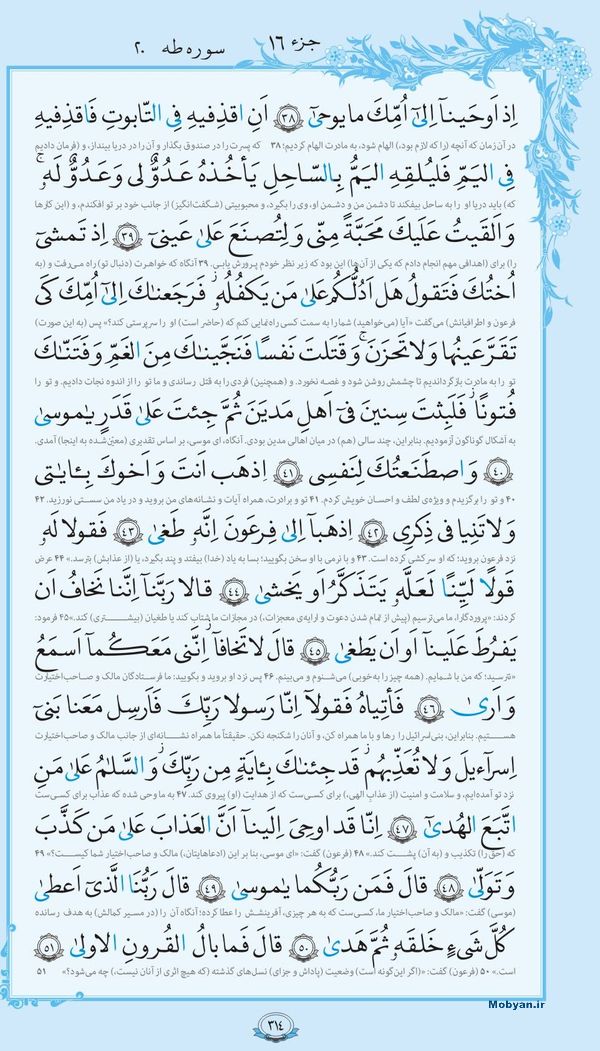 جزء ۱۶ سوره طه ۲۰
اِذ اَوحَينآ اِلىٰٓ اُمِّكَ ما يوحىٰٓ ۳۸ اَنِ اقذِفيهِ فِى التّابوتِ فَاقذِفيهِ
در آن زمان که آنچه را (که لازم بود،) الهام شود، به مادرت الهام کردیم؛ ۳۸ که پسرت را در صندوق بگذار و آن را در دریا بینداز، و (فرمان دادیم
فِى اليَمِّ فَليُلقِهِ اليَمُّ بِالسّاحِلِ يَأخُذهُ عَدُوٌّ لى وَ عَدُوٌّ لَهٗ ۚ
که) باید دریا او را به ساحل بیفکند تا دشمن من و دشمن او، وی را بگیرد، و محبوبیتی (شگفت‌انگیز) از جانب خود بر تو افکندم، و (این کارها
وَ اَلقَيتُ عَلَيكَ مَحَبَّةً مِنّى وَ لِتُصنَعَ عَلىٰ عَينىٓ ۳۹ اِذ تَمشىٓ
را) برای (اهدافی مهم انجام دادم که یکی از آن‌ها) این بود که زیر نظر خودم پرورش یابی. ۳۹ آنگاه که خواهرت (دنبال تو) راه می‌رفت و (به
اُختُكَ فَتَقولُ هَل اَدُلُّكُم عَلىٰ مَن يَكفُلُهٗ ۖ فَرَجَعناكَ اِلىٰٓ اُمِّكَ كَى
فرعون و اطرافیانش) می‌گفت «آیا (می‌خواهید) شما را به سمت کسی راه‌نمایی کنم که (حاضر است) او را سرپرستی کند؟» پس (به این صورت)
تَقَرَّ عَينُها وَ لا تَحزَنَ ۚ وَ قَتَلتَ نَفسًا فَنَجَّيناكَ مِنَ الغَمِّ وَ فَتَنّاكَ
تو را به مادرت بازگرداندیم تا چشمش روشن شود و غصه نخورد. و (همچنین) فردی را به قتل رساندی و ما تو را از اندوه نجات دادیم. و تو را
فُتونًا ۚ فَلَبِثتَ سِنينَ فىٓ اَهلِ مَديَنَ ثُمَّ جِئتَ عَلىٰ قَدَرٍ يٰموسىٰ
به اشکال گوناگون آزمودیم. بنابراین، چند سالی (هم) در میان اهالی مدین بودی. آنگاه، ای موسی، بر اساس تقدیری (معیّن‌شده به اینجا) آمدی.
۴۰ وَ اصطَنَعتُكَ لِنَفسى ۴۱ اِذهَب اَنتَ وَ اَخوكَ بِـٔاياتى
۴۰ و تو را برگزیدم و ویژه‌ی لطف و احسان خویش کردم. ۴۱ تو و برادرت، همراه آیات و نشانه‌های من بروید و در یاد من سستی نورزید. ۴۲
وَ لا تَنِيا فى ذِكرِى ۴۲ اِذهَبآ اِلىٰ فِرعَونَ اِنَّهٗ طَغىٰ ۴۳ فَقولا لَهٗ
نزد فرعون بروید؛ که او سرکشی کرده است. ۴۳ و با نرمی با او سخن بگویید؛ بسا به یاد (خدا) بیفتد و پند بگیرد، یا (از عذابش) بترسد.» ۴۴ عرض
قَولًا لَيِّنًا لَعَلَّهٗ يَتَذَكَّرُ اَو يَخشىٰ ۴۴ قالا رَبَّنآ اِنَّنا نَخافُ اَن
کردند: «پروردگارا، ما می‌ترسیم (پیش از تمام شدن دعوت و ارایه‌ی معجزات،) در مجازات ما شتاب کند یا طغیان (بیشتری) کند.» ۴۵ فرمود:
يَفرُطَ عَلَينآ اَو اَن يَطغىٰ ۴۵ قالَ لا تَخافآ ۖ اِنَّنى مَعَكُمآ اَسمَعُ
«نترسید؛ که من با شمایم. (همه چیز را به‌خوبی) می‌شنوم و می‌بینم. ۴۶ پس نزد او بروید و بگویید: ما فرستادگان مالک و صاحب‌اختیارت
وَ اَرىٰ ۴۶ فَأتِياهُ فَقولآ اِنّا رَسولا رَبِّكَ فَاَرسِل مَعَنا بَنىٓ
هستیم. بنابراین، بنی‌اسرائیل را رها و با ما همراه کن، و آنان را شکنجه نکن. حقیقتاً ما همراه نشانه‌ای از جانب مالک و صاحب‌اختیارت
اِسرآءيلَ وَ لا تُعَذِّبهُم ۖ قَد جِئناكَ بِـٔايَةٍ مِن رَبِّكَ ۖ وَ السَّلامُ عَلىٰ مَنِ
نزد تو آمده‌ایم، و سلامت و امنیت (از عذاب الهی،) برای کسی‌ست که از هدایت (او) پیروی کند. ۴۷ به ما وحی شده که عذاب برای کسی‌ست
اتَّبَعَ الهُدىٰٓ ۴۷ اِنّا قَد اوحِىَ اِلَينآ اَنَّ العَذابَ عَلىٰ مَن كَذَّبَ
که (حق را) تکذیب و (به آن) پشت کند.» ۴۸ (فرعون) گفت: «ای موسی، بنا بر این (ادعاهایتان،) مالک و صاحب‌اختیار شما کیست؟» ۴۹
وَ تَوَلّىٰ ۴۸ قالَ فَمَن رَبُّكُما يٰموسىٰ ۴۹ قالَ رَبُّنَا الَّذىٓ اَعطىٰ
(موسی) گفت: «مالک و صاحب‌اختیار ما، کسی‌ست که به هر چیزی، آفرینشش را عطا کرده؛ آنگاه آن را (در مسیر کمالش) به هدف رسانده
كُلَّ شَىءٍ خَلقَهٗ ثُمَّ هَدىٰ ۵۰ قالَ فَما بالُ القُرونِ الاولىٰ ۵۱
است.» ۵۰ (فرعون) گفت: «(اگر این‌گونه است) وضعیت (پاداش و جزای) نسل‌های گذشته (که هیچ اثری از آنان نیست،) چه می‌شود؟» ۵۱
Mobyan.ir
۳۱۴